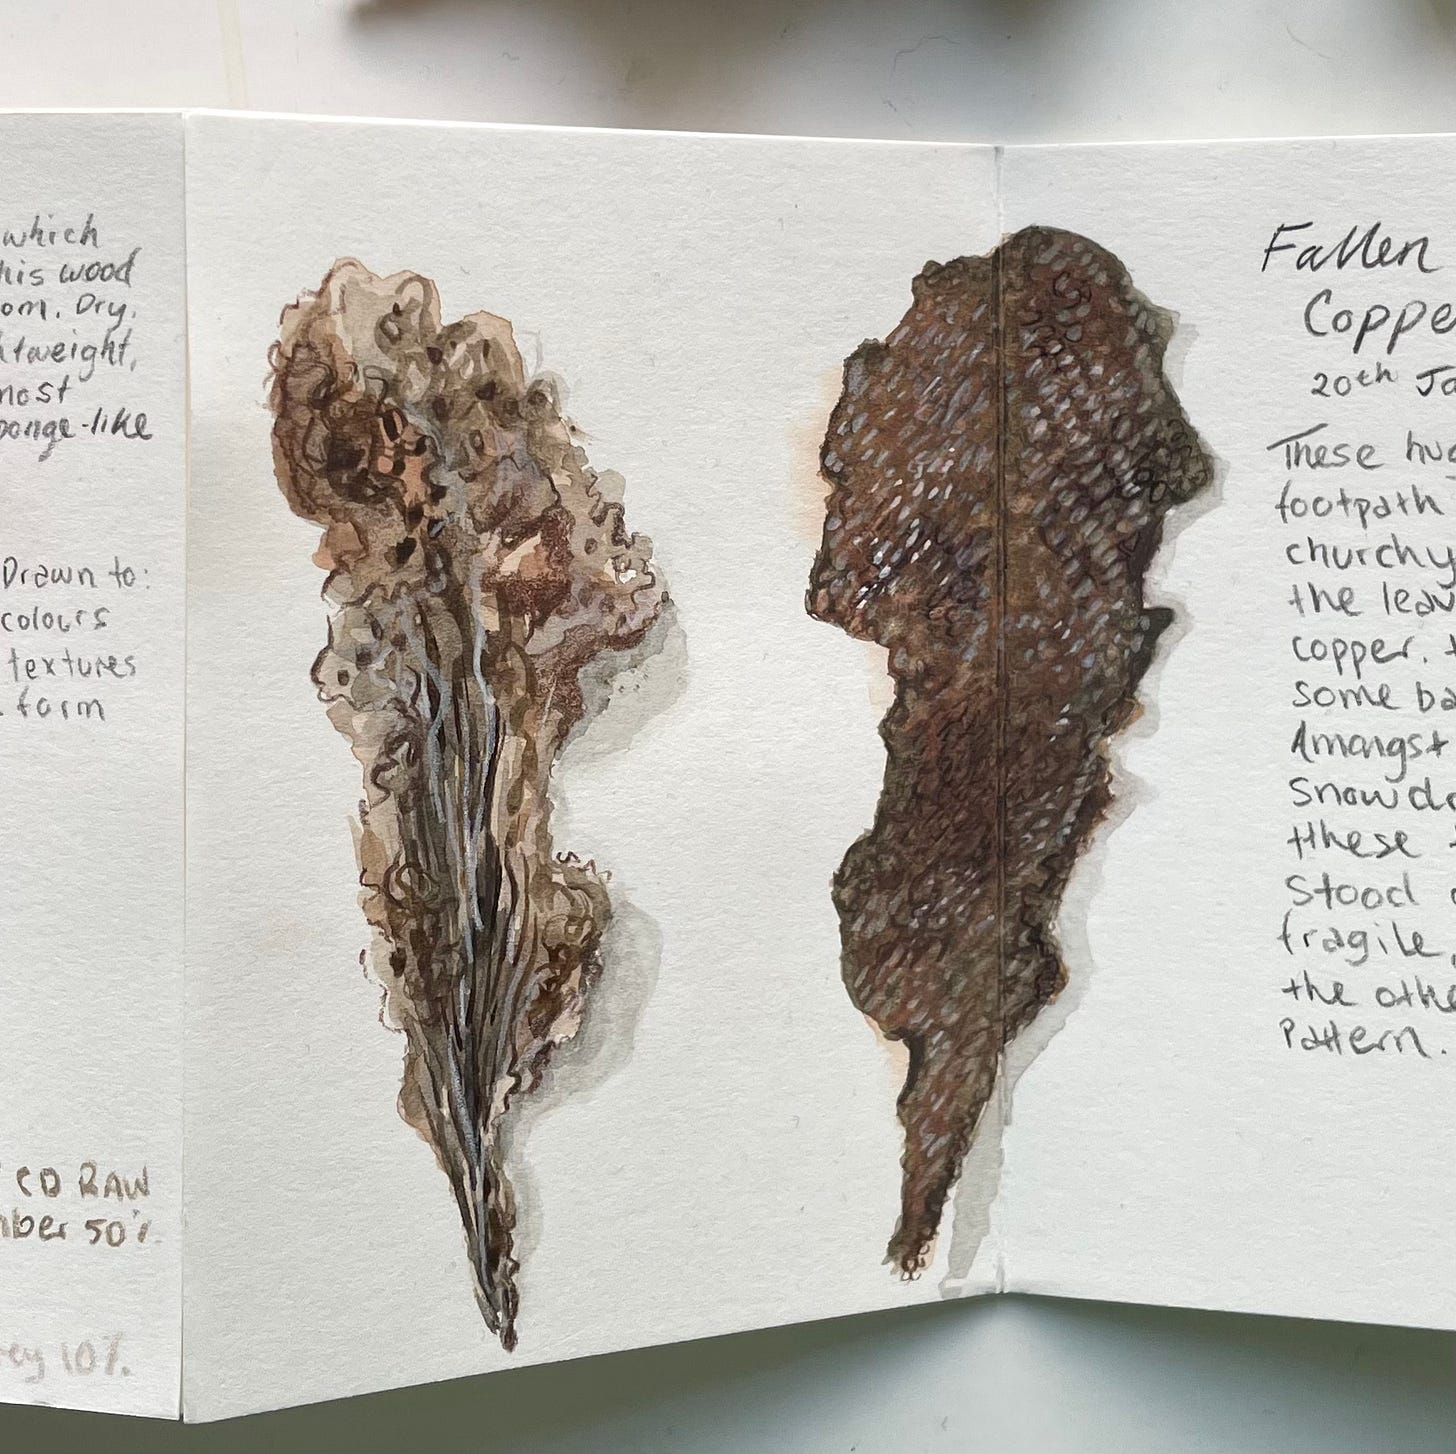 which
his wood
om. Dry,
htweight,
most
ponge-like
Drawn to:
colours
textures
form
CD RAW
mber 50%
ey 10%.
Fallen
Coppe
20th Ja
These hug
footpath
churchy
the leav
copper. t
some ba
Amongst
snowdr
these
stood
fragile,
the othe
Pattern.